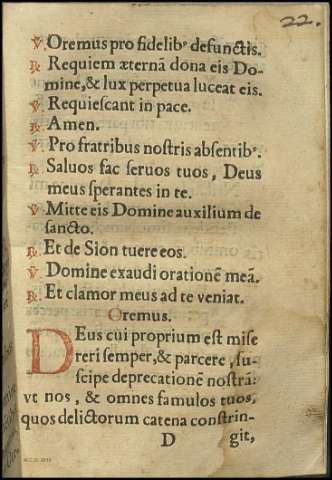 22.
℣. Oremus pro fidelibꝰ defunctis.
℟. Requiem æternā dona eis Do-
mine, & lux perpetua luceat eis.
℣. Requieſcant in pace.
℟. Amen.
℣. Pro fratribus noſtris abſentibꝰ.
℟. Saluos fac ſeruos tuos, Deus
meus ſperantes in te.
℣. Mitte eis Domine auxilium de
ſancto.
℟. Et de Sion tuere eos.
℣. Domine exaudi orationē meā.
℟. Et clamor meus ad te veniat.
Oremus.
DEus cui proprium eſt miſe
reri ſemper, & parcere, ſu-
ſcipe deprecationē noſtrā:
vt nos, & omnes famulos tuos,
quos delictorum catena conſtrin-
D git,